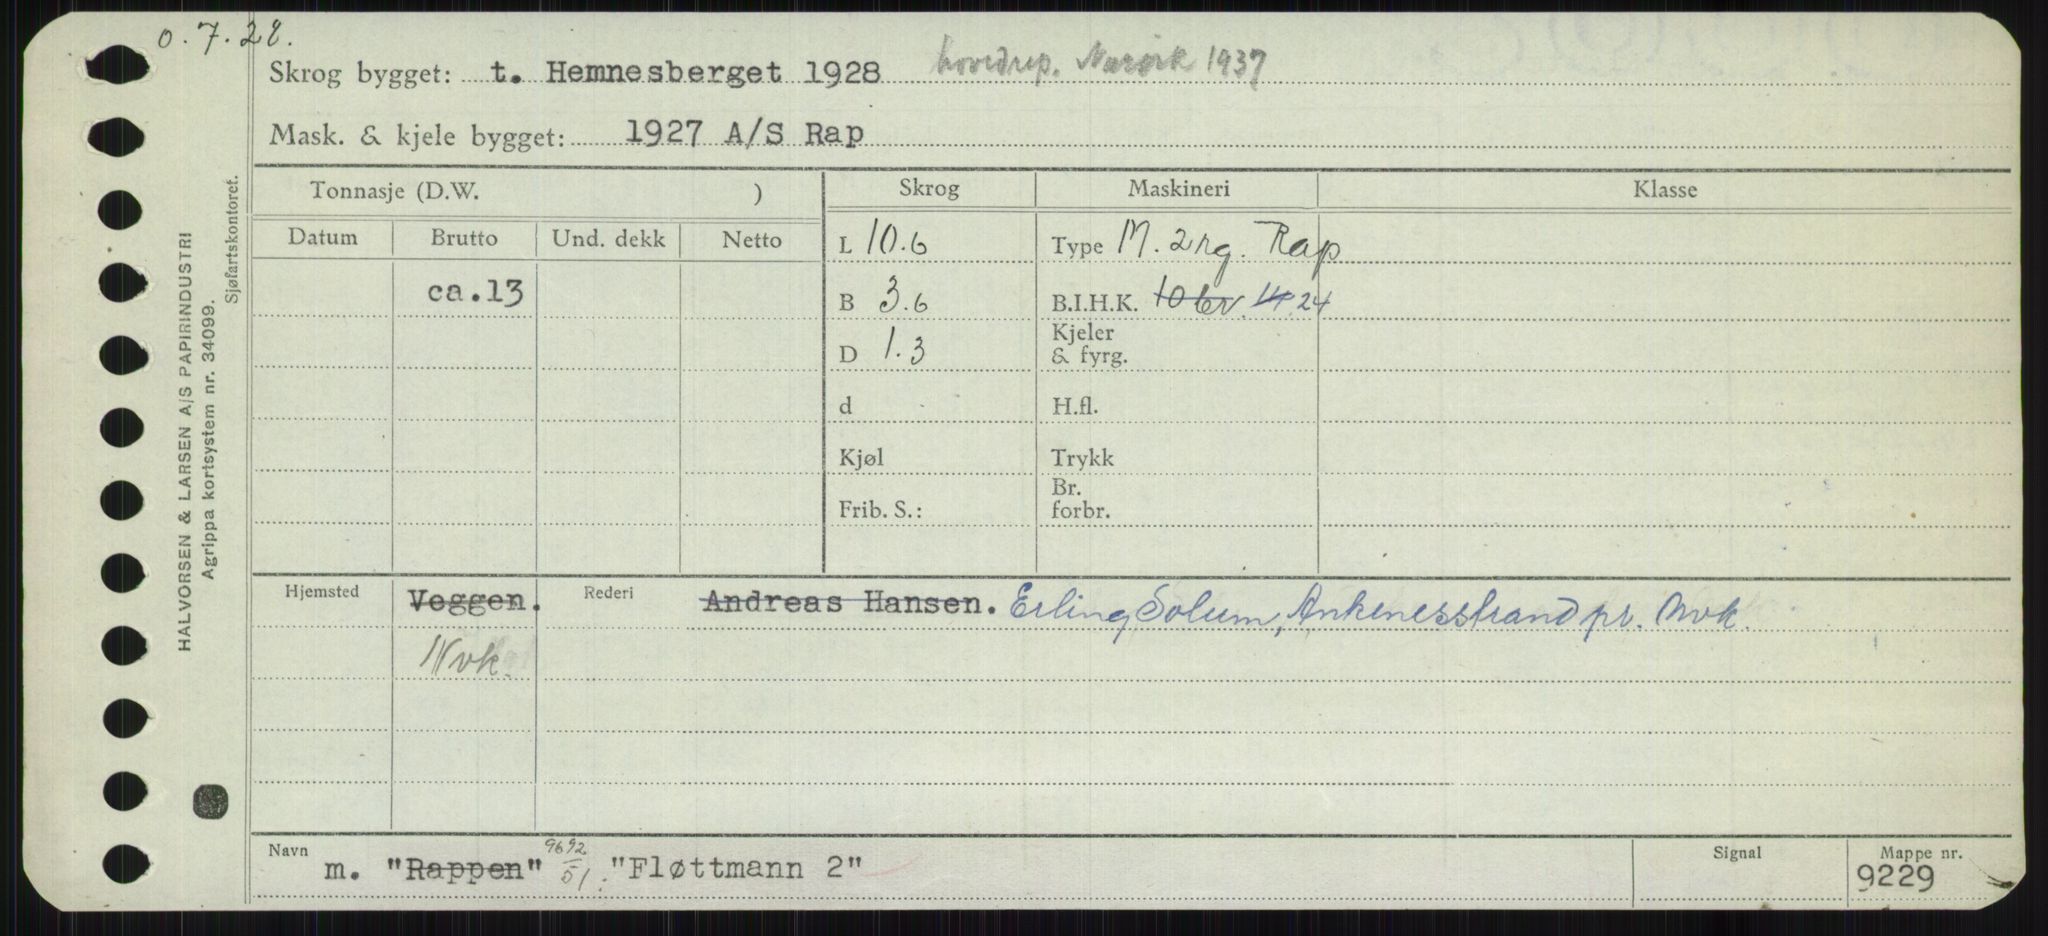 o. 7. 28.
Skrog bygget: t. Hemnesberget 1928 hovedrep. Narvik 1937
Mask. & kjele bygget: 1927 A/S Rap
Tonnasje (D.W. ) Skrog Maskineri Klasse
Datum Brutto Und. dekk Netto
L 10.6 Type M. 2 rg. Rap
ca.13 B 3.6 B.I.H.K. 10 14 24
D 1.3 Kjeler
& fyrg.
d H.fl.
Kjøl Trykk
Frib. S.: Br.
forbr.
Hjemsted Veggen. Rederi Andreas Hansen. Erling Solum, Ankenesstrand pr. Nvk.
Nvk.
Navn m. "Rappen" 9692/51: "Fløttmann 2" Signal Mappe nr.
9229
HALVORSEN & LARSEN A/S PAPIRINDUSTRI
Agrippa kortsystem nr. 34099.
Sjøfartskontoret.